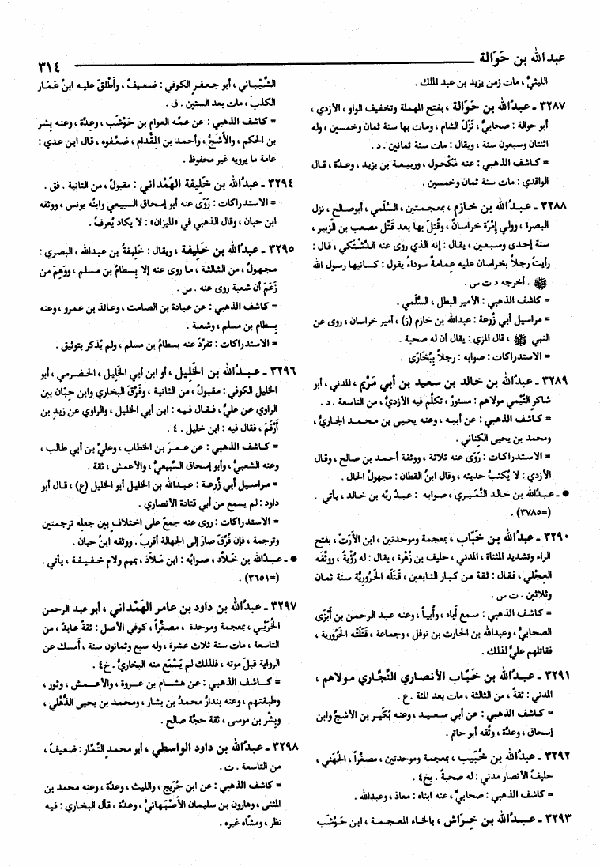 عبدالله بن حَوَالة
٣١٤
الليثيّ ، مات زمن يزيد بن عبد الملك .
٣٢٨٧ ـ عبدالله بن حَوَالة ، بفتح المهملة وتخفيف الواو ، الأزدي ،
أبو حوالة : صحابيّ ، نَزَل الشام ، ومات بها سنة ثمان وخمسين ، وله
اثنتان وسبعون سنة ، ويقال : مات سنة ثمانين . د .
= كاشف الذهبي : عنه مكحول ، وربيعة بن يزيد ، وعدّة ، قال
الواقدي : مات سنة ثمان وخمسين .
٣٢٨٨ ـ عبدالله بن خازم ، بمعجمتين ، السُّلَمي ، أبو صالح ، نزل
البصرة ، وولي إمْرَة خراسان ، وقُتِل بها بعد قَتْل مصعب بن الزبير ،
سنة إحدى وسبعين ، يقال : إنه الذي روى عنه الدَّشْتَكي ، قال :
رأيتُ رجلاً بخراسان عليه عِمامة سوداء يقول : كسانيها رسول الله
ﷺ . أخرجه د ت س .
= كاشف الذهبي : الأمير البطل ، السُّلَمي .
= مراسيل أبي زُرعة : عبدالله بن خازم (ز) ، أمير خراسان ، روى عن
النبي ﷺ ، قال المزي : يقال أن له صحبة .
= الاستدراكات : صوابه : رجلاً بِبُخَارَى
٣٢٨٩ ـ عبدالله بن خالد بن سعيد بن أبي مَرْيم ، المدني ، أبو
شاكر التَّيْمي مولاهم : مستورٌ ، تكلَّم فيه الأزديُّ ، من التاسعة . د .
= كاشف الذهبي : عن أبيه ، وعنه يحيى بن محمد الجَاريّ ،
ومحمد بن يحيى الكِناني .
= الاستدراكات : رَوَى عنه ثلاثة ، ووثقه أحمد بن صالح ، وقال
الأزدي : لا يُكتبُ حديثه ، وقال ابنُ القطان : مجهولُ الحال .
● ـ عبدالله بن خالد النُّمَيري ، صوابه : عبدُ ربّه بن خالد ، يأتي .
(=٣٧٨٥) .
٣٢٩٠ ـ عبدالله بن خَبّاب ، بمعجمة وموحدتين ، ابن الأَرَتّ ، بفتح
الراء وتشديد المثناة ، المدني ، حليف بني زُهْرة ، يقال : له رُؤْيةٌ ، ووثّقه
العِجْلي ، فقال : ثقة من كبار التابعين ، قَتَلَه الحَرُوريّة سنة ثمان
وثلاثين . ت س .
= كاشف الذهبي : سمع أباه ، وأُبَيّاً ، وعنه عبد الرحمن بن أَبْزَى
الصحابيُّ ، وعبدالله بن الحارث بن نوفل ، وجماعة ، قتلَتْه الحَرُورية ،
فقاتلهم عليٌّ لذلك .
٣٢٩١ ـ عبدالله بن خَبّاب الأنصاري النَّجَّاري مولاهم ،
المدني : ثقةٌ ، من الثالثة ، مات بعد المئة . ع .
= كاشف الذهبي : عن أبي سعيد ، وعنه بُكَيْر بن الأشجّ وابن
إسحاق ، وعدّة ، وثّقه أبو حاتم .
٣٢٩٢ ـ عبدالله بن خُبَيب ، بمعجمة وموحدتين ، مصغّراً ، الجُهَني ،
حليفُ الأنصار مدنيّ : له صحبةٌ . بخ ٤ .
= كاشف الذهبي : صحابيّ ، عنه ابناه : معاذ ، وعبدالله .
٣٢٩٣ ـ عبدالله بن خِراش ، بالخاء المعجمة ، ابن حَوْشَب
الشَّيْباني ، أبو جعفر الكوفي : ضعيفٌ ، وأَطْلَق عليه ابنُ عمّار
الكذب ، مات بعد الستين . ق .
= كاشف الذهبي : عن عمّه العوام بن حَوْشَب ، وعدّة ، وعنه بشر
بن الحكم ، والأشجُّ ، وأحمد بن المِقْدام ، ضعّفوه ، قال ابن عدي :
عامة ما يرويه غير محفوظ .
٣٢٩٤ ـ عبدالله بن خَليفة الهَمْدَاني : مقبولٌ ، من الثانية . فق .
= الاستدراكات : رَوَى عنه أبو إسحاق السبيعي وابنُه يونس ، ووثقه
ابن حبان ، وقال الذهبي في «الميزان» : لا يكاد يُعرف .
٣٢٩٥ ـ عبدالله بن خَليفة ، ويقال : خَليفةُ بن عبدالله ، البصري :
مجهولٌ ، من الثالثة ، ما روى عنه إلا بِسطامُ بن مسلم ، ووَهِمَ مَن
زَعَم أن شعبة روى عنه . س .
= كاشف الذهبي : عن عبادة بن الصامت ، وعائذ بن عمرو ، وعنه
بِسطام بن مسلم ، وشعبة .
= الاستدراكات : تفرّد عنه بسطام بن مسلم ، ولم يُذكر بتوثيق .
٣٢٩٦ ـ عبدالله بن الخَليل ، أو ابن أبي الخَليل ، الحَضْرَمي ، أبو
الخليل الكوفي : مقبولٌ ، من الثانية ، وفَرَّق البخاري وابن حِبّان بين
الراوي عن عليّ ، فقال فيه : ابن أبي الخليل ، والراوي عن زيد بن
أَرْقَم ، فقال فيه : ابن خليل . ٤ .
= كاشف الذهبي : عن عمر بن الخطاب ، وعليّ بن أبي طالب ،
وعنه الشعبيُّ ، وأبو إسحاق السَّبِيعيُّ ، والأعمش ، ثقة .
= مراسيل أبي زُرعة : عبدالله بن الخليل أبو الخليل (ع) ، قال أبو
داود : لم يسمع من أبي قتادة الأنصاري .
= الاستدراكات : روى عنه جمعٌ على اختلافٍ بين جعله ترجمتين
وترجمة ، فإن فُرِّق صار إلى الجهالة أقرب . ووثقه ابنُ حبان .
● ـ عبدالله بن خَلّاد ، صوابُه : ابن مَلاذ ، بميم ولام خفيفة ، يأتي .
(=٣٦٥١) .
٣٢٩٧ ـ عبدالله بن داود بن عامر الهَمْدَاني ، أبو عبد الرحمن
الخُرَيْبي ، بمعجمة وموحدة ، مصغّراً ، كوفي الأصل : ثقةٌ عابدٌ ، من
التاسعة ، مات سنة ثلاث عشرة ، وله سبع وثمانون سنة ، أمسك عن
الرواية قبل موته ، فلذلك لم يَسْمَع منه البخاريُّ . خ ٤ .
= كاشف الذهبي : عن هشام بن عروة ، والأعمش ، وثور ،
وطبقتهم ، وعنه بُندارُ محمدُ بن بشار ، ومحمد بن يحيى الذُّهْلي ،
وبِشْر بن موسى ، ثقة حجّة صالح .
٣٢٩٨ ـ عبدالله بن داود الواسطي ، أبو محمد التمّار : ضعيفٌ ،
من التاسعة . ت .
= كاشف الذهبي : عن ابن جُرَيج ، والليث ، وعدّة ، وعنه محمد بن
المثنى ، وهارون بن سليمان الأصبهانيُّ ، وعدّة ، قال البخاري : فيه
نظر ، ومشّاه غيره .